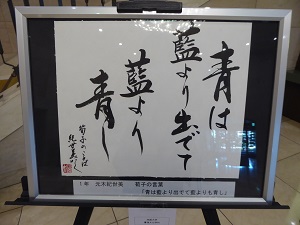 青は
藍より出でて
藍より
青し
荀子のことば
1年 元木紀世美 荀子の言葉
『青は藍より出でて藍よりも青し』